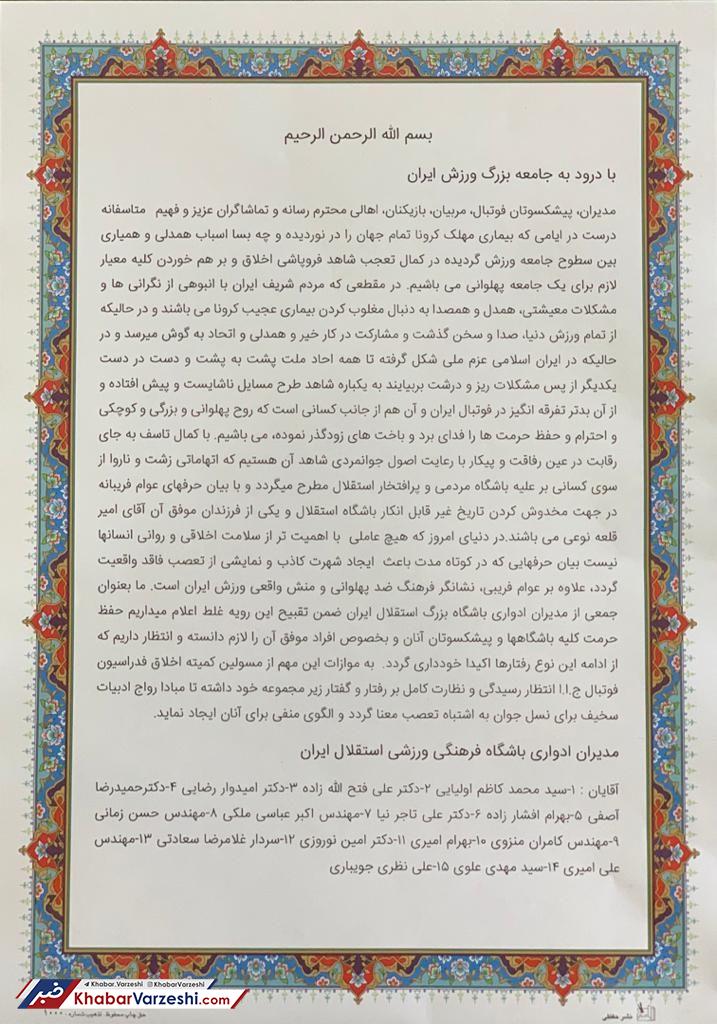 بسم الله الرحمن الرحیم
با درود به جامعه بزرگ ورزش ایران
مدیران، پیشکسوتان فوتبال، مربیان، بازیکنان، اهالی محترم رسانه و تماشاگران عزیز و فهیم متاسفانه
درست در ایامی که بیماری مهلک کرونا تمام جهان را در نوردیده و چه بسا اسباب همدلی و همیاری
بین سطوح جامعه ورزش گردیده در کمال تعجب شاهد فروپاشی اخلاق و بر هم خوردن کلیه معیار
لازم برای یک جامعه پهلوانی می باشیم. در مقطعی که مردم شریف ایران با انبوهی از نگرانی ها و
مشکلات معیشتی، همدل و همصدا به دنبال مغلوب کردن بیماری عجیب کرونا می باشند و در حالیکه
از تمام ورزش دنیا، صدا و سخن گذشت و مشارکت در کار خیر و همدلی و اتحاد به گوش میرسد و در
حالیکه در ایران اسلامی عزم ملی شکل گرفته تا همه احاد ملت پشت به پشت و دست در دست
یکدیگر از پس مشکلات ریز و درشت بربیایند به یکباره شاهد طرح مسایل ناشایست و پیش افتاده و
از آن بدتر تفرقه انگیز در فوتبال ایران و آن هم از جانب کسانی است که روح پهلوانی و بزرگی و کوچکی
و احترام و حفظ حرمت ها را فدای برد و باخت های زودگذر نموده، می باشیم. با کمال تاسف به جای
رقابت در عین رفاقت و پیکار با رعایت اصول جوانمردی شاهد آن هستیم که اتهاماتی زشت و ناروا از
سوی کسانی بر علیه باشگاه مردمی و پرافتخار استقلال مطرح میگردد و با بیان حرفهای عوام فریبانه
در جهت مخدوش کردن تاریخ غیر قابل انکار باشگاه استقلال و یکی از فرزندان موفق آن آقای امیر
قلعه نوعی می باشند.در دنیای امروز که هیچ عاملی با اهمیت تر از سلامت اخلاقی و روانی انسانها
نیست بیان حرفهایی که در کوتاه مدت باعث ایجاد شهرت کاذب و نمایشی از تعصب فاقد واقعیت
گردد، علاوه بر عوام فریبی، نشانگر فرهنگ ضد پهلوانی و منش واقعی ورزش ایران است. ما بعنوان
جمعی از مدیران ادواری باشگاه بزرگ استقلال ایران ضمن تقبیح این رویه غلط اعلام میداریم حفظ
حرمت کلیه باشگاهها و پیشکسوتان آنان و بخصوص افراد موفق آن را لازم دانسته و انتظار داریم که
از ادامه این نوع رفتارها اکیدا خودداری گردد. به موازات این مهم از مسولین کمیته اخلاق فدراسیون
فوتبال ج.ا.ا انتظار رسیدگی و نظارت کامل بر رفتار و گفتار زیر مجموعه خود داشته تا مبادا رواج ادبیات
سخیف برای نسل جوان به اشتباه تعصب معنا گردد و الگوی منفی برای آنان ایجاد نماید.
مدیران ادواری باشگاه فرهنگی ورزشی استقلال ایران
آقایان : ۱-سید محمد کاظم اولیایی ۲-دکتر علی فتح الله زاده ۳-دکتر امیدوار رضایی ۴-دکترحمیدرضا
آصفی ۵-بهرام افشار زاده ۶-دکتر علی تاجر نیا ۷-مهندس اکبر عباسی ملکی ۸-مهندس حسن زمانی
۹-مهندس کامران منزوی ۱۰-بهرام امیری ۱۱-دکتر امین نوروزی ۱۲-سردار غلامرضا سعادتی ۱۳-مهندس
علی امیری ۱۴-سید مهدی علوی ۱۵-علی نظری جویباری
Khabar.Varzeshi KhabarVarzeshi
خبر KhabarVarzeshi.com
حق چاپ محفوظ. تذهیب شماره: ۱۰۰۰
نشر حفظی